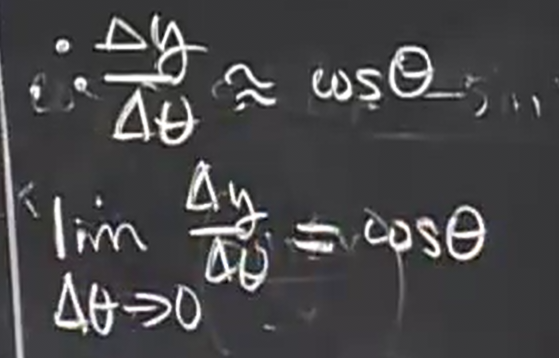 ∴ Δy/Δθ ≈ cosθ
lim Δθ→0 Δy/Δθ = cosθ